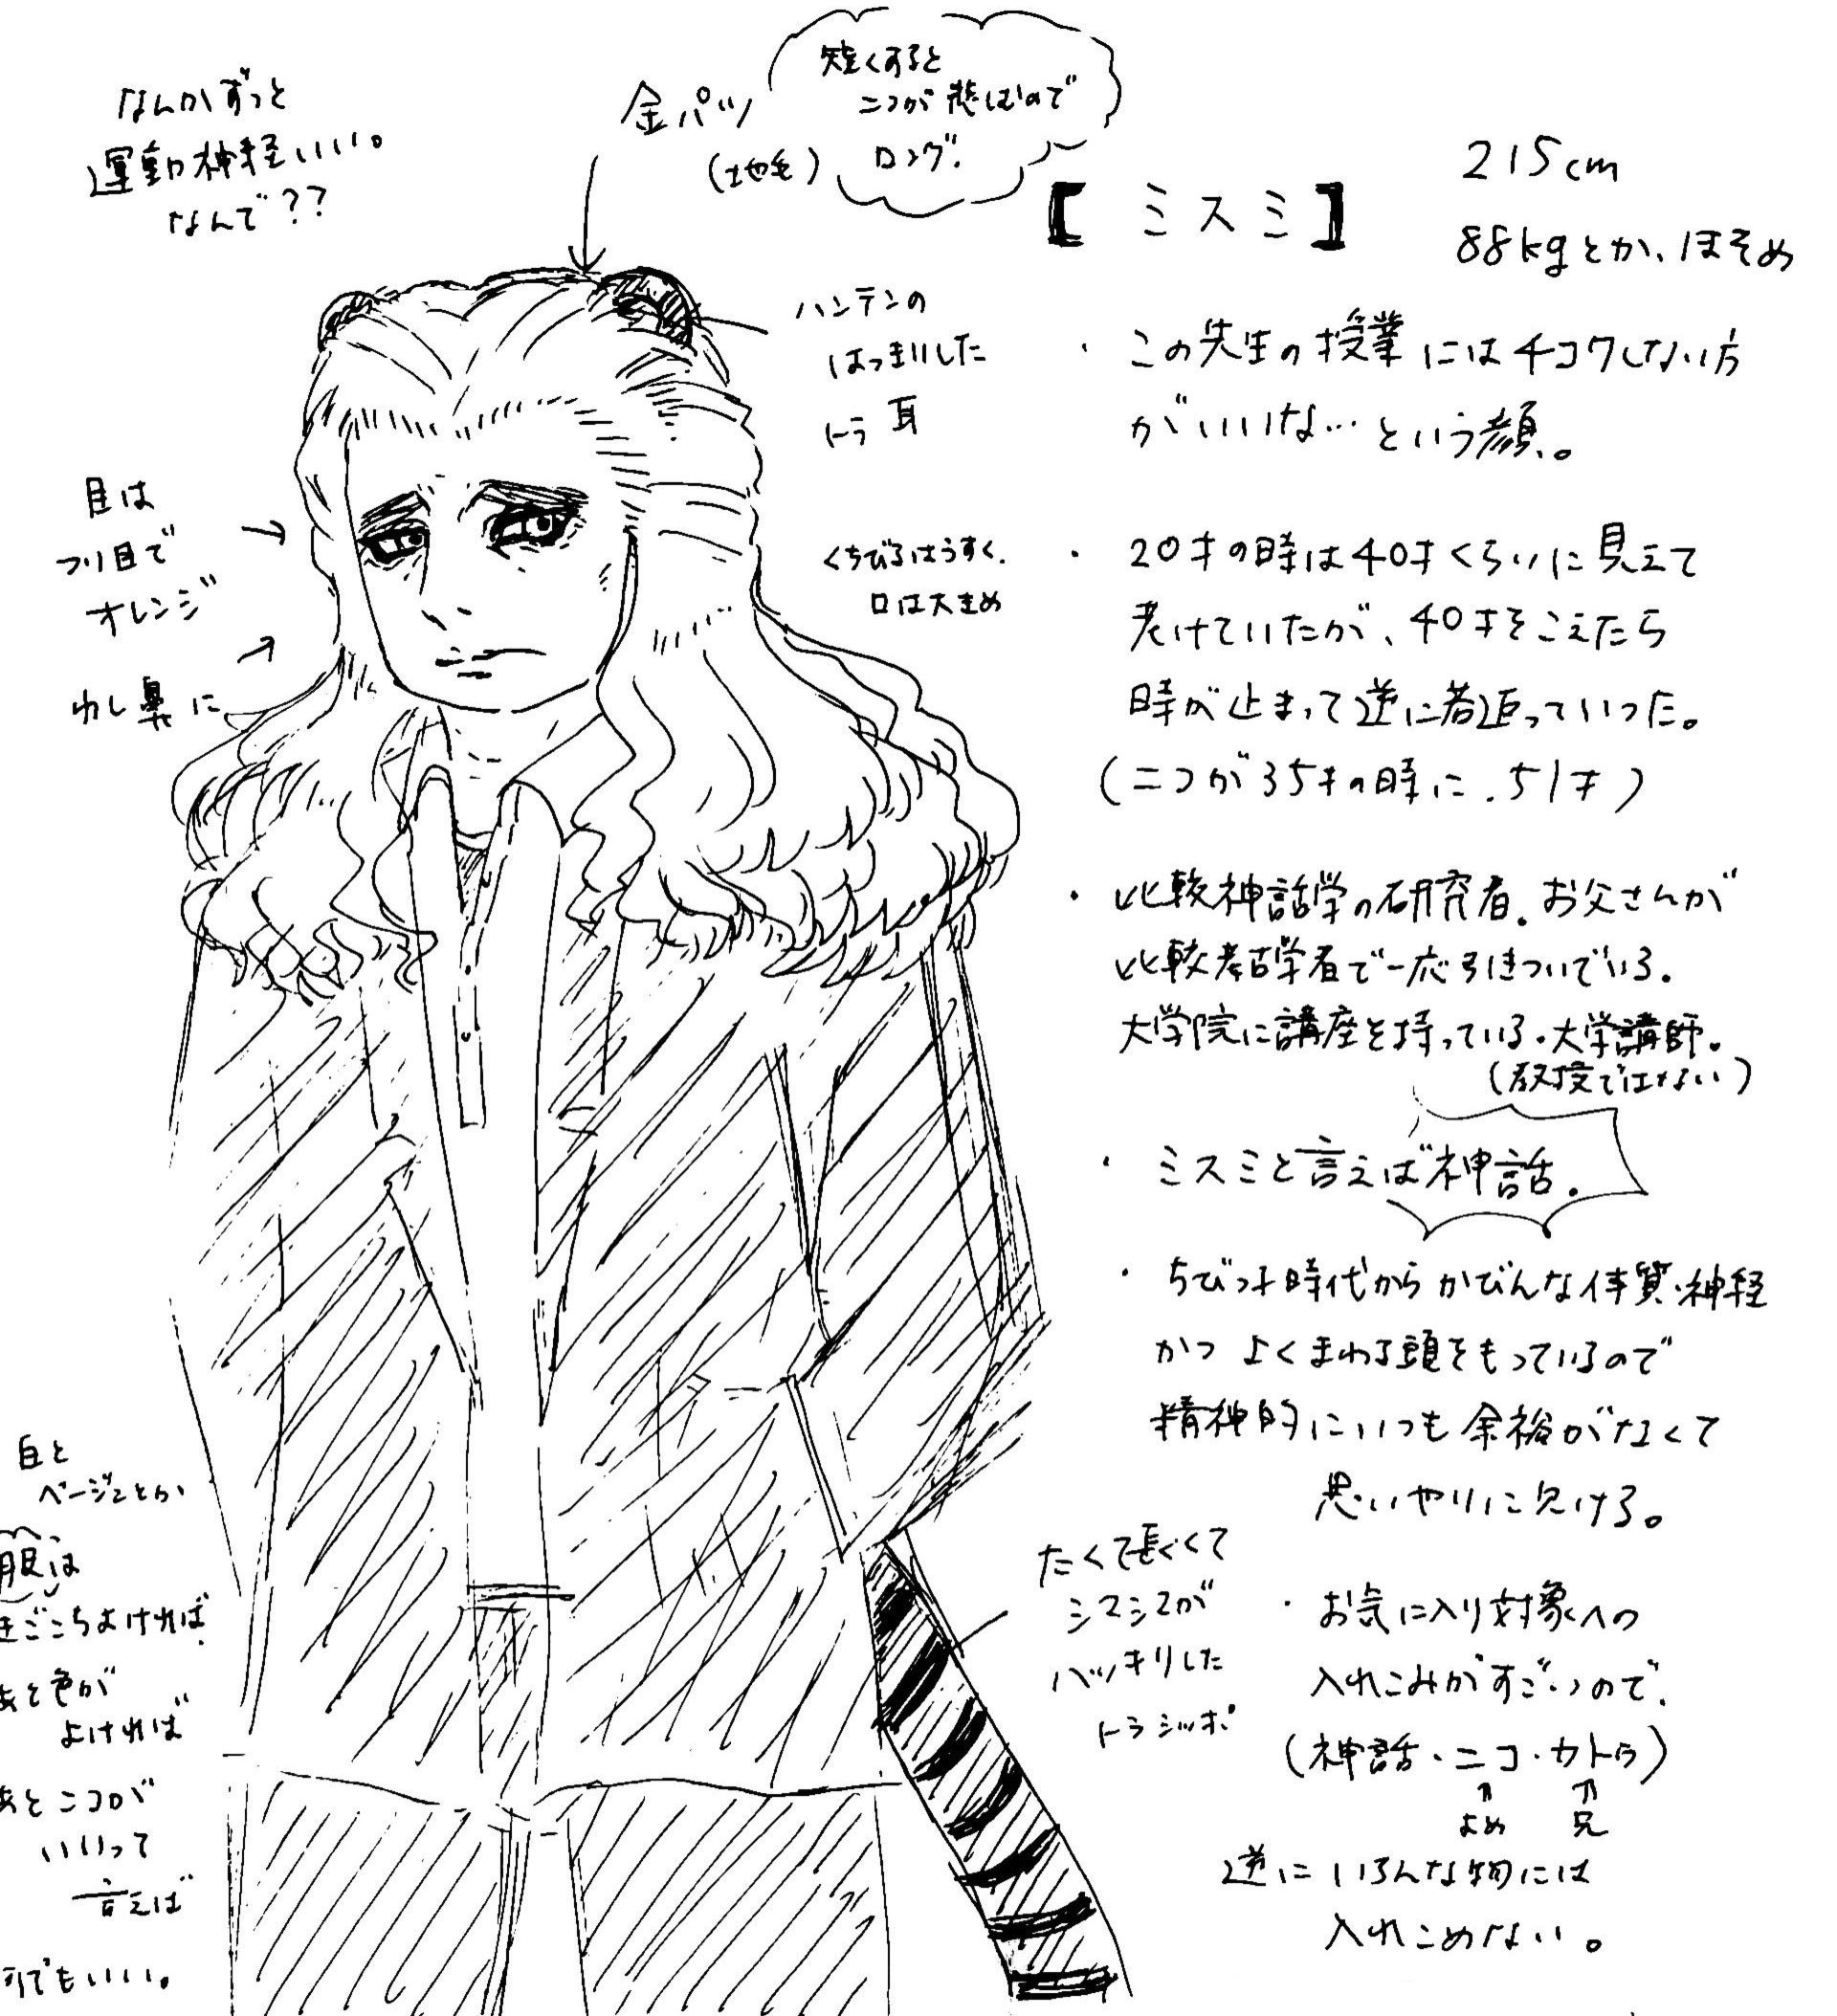 なんかずっと
運動神経いい。
なんで??
金パツ
(地毛)
短くすると
ニコが悲しむので
ロング。
【ミスミ】
215cm
88kgとか、ほそめ
ハンテンの
はっきりした
トラ耳
目は
ツリ目で
オレンジ
わし鼻に
くちびるはうすく、
口は大きめ
・この先生の授業にはチコクしない方
がいいな…という顔。
・20才の時は40才くらいに見えて
老けていたが、40才をこえたら
時が止まって逆に若返っていった。
(ニコが35才の時に、51才)
・比較神話学の研究者。お父さんが
比較考古学者で一応引きついでいる。
大学院に講座を持っている。大学講師。
(教授ではない)
・ミスミと言えば神話。
・ちびっ子時代からかびんな体質・神経
かつよくまわる頭をもっているので
精神的にいつも余裕がなくて
思いやりに欠ける。
・お気に入り対象への
入れこみがすごいので、
(神話・ニコ・カトウ)
よめ 兄
逆にいろんな物には
入れこめない。
たくて長くて
シマシマが
ハッキリした
トラシッポ
白と
ベージュとか
服は
きごこちよければ
あと色が
よければ
あとニコが
いいって
言えば
何でもいい。